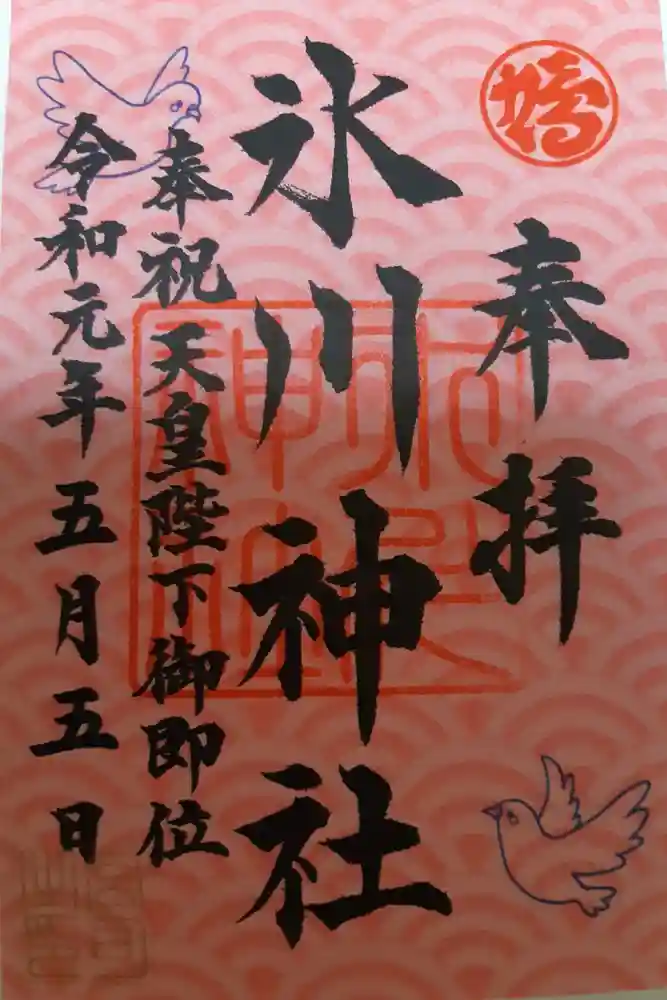 奉拝
氷川神社
奉祝天皇陛下御即位
令和元年五月五日